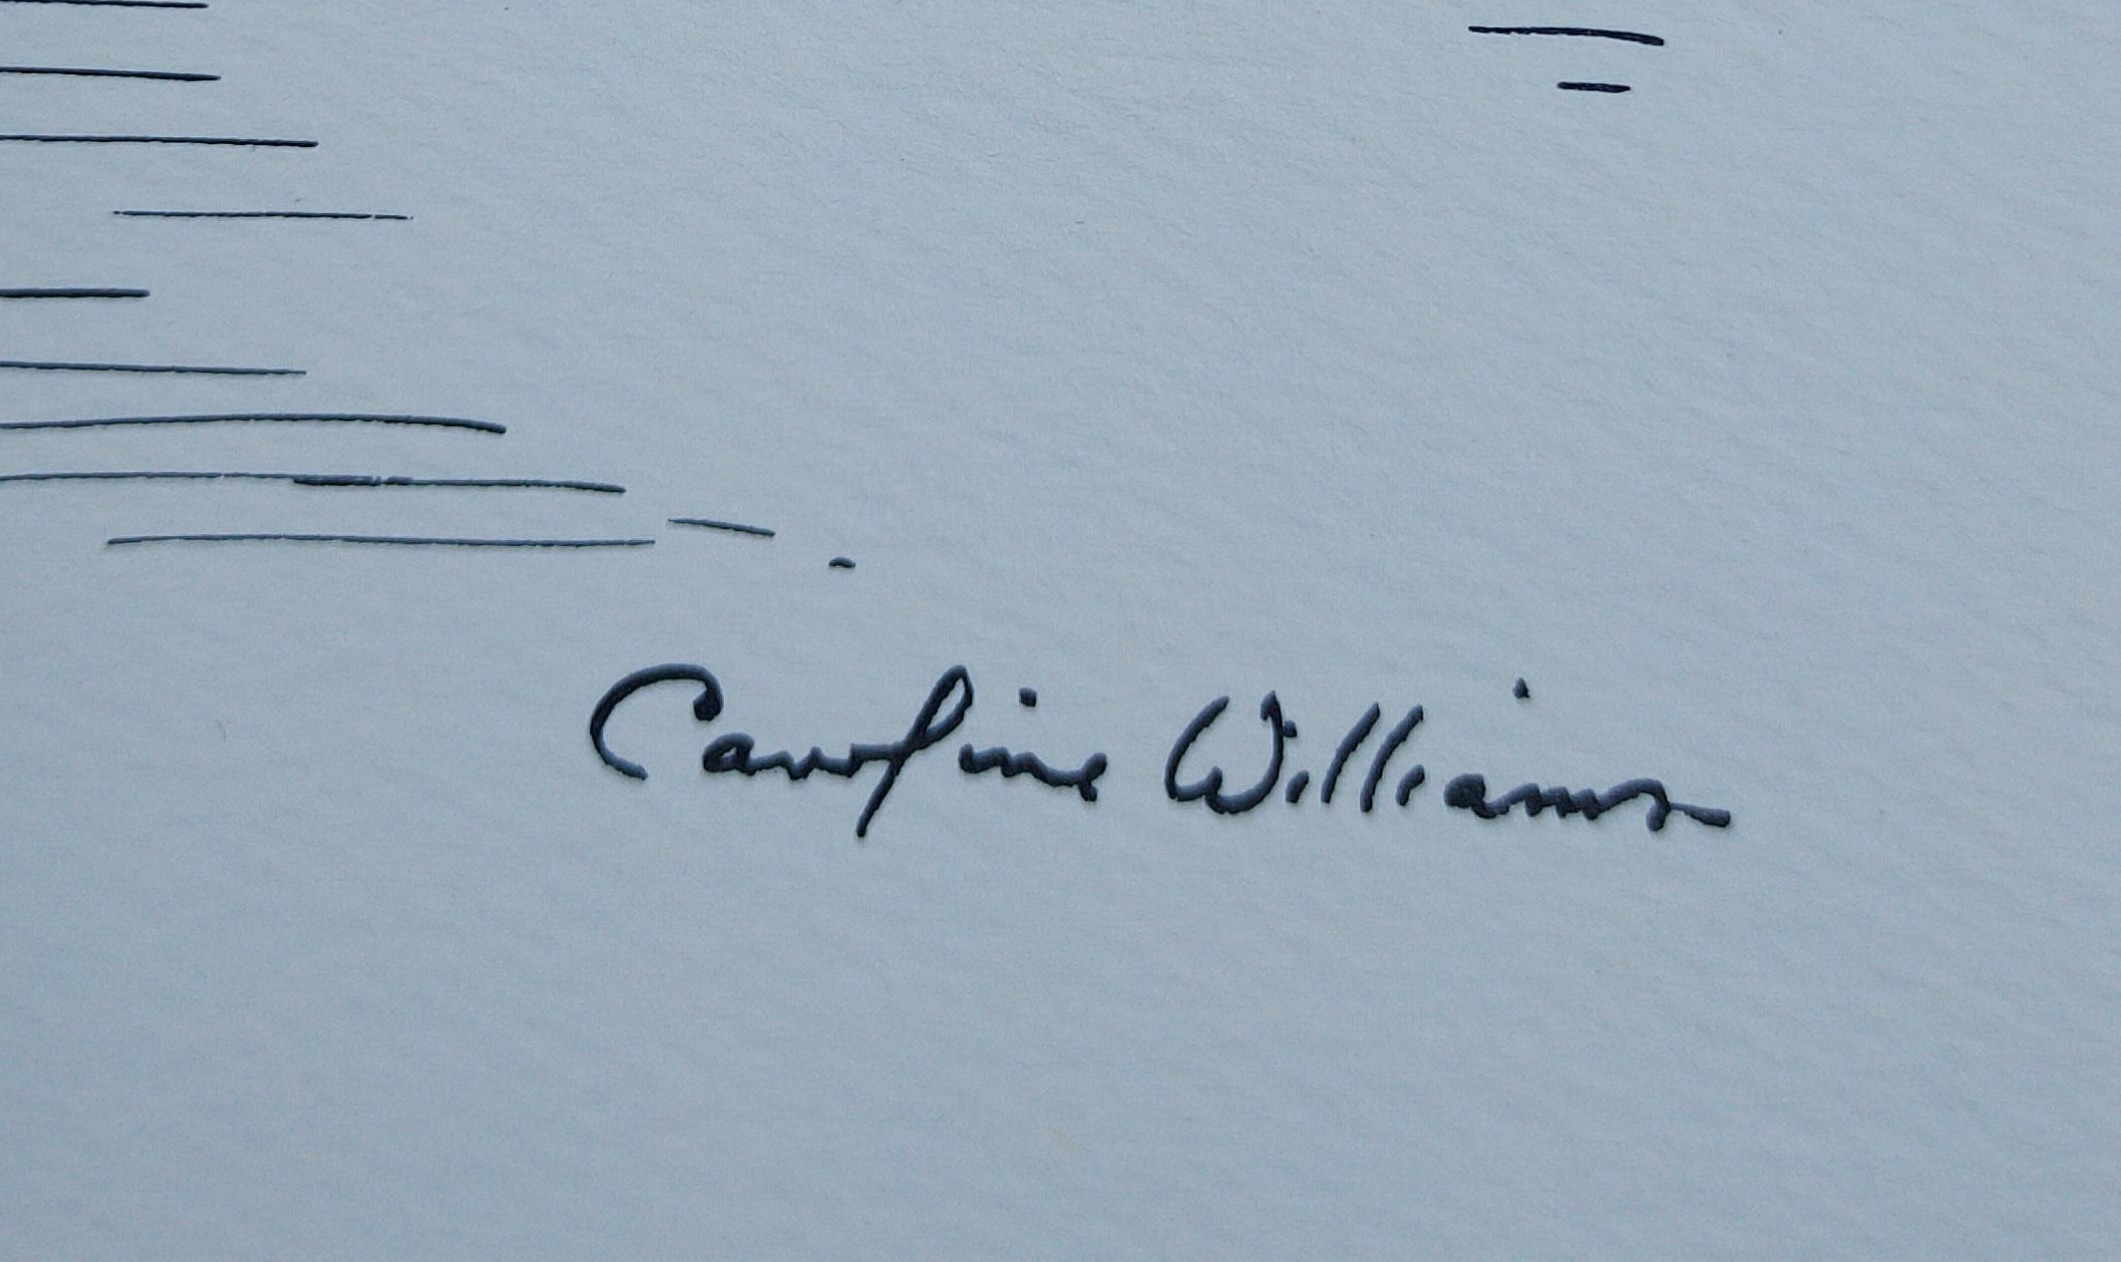 Caroline Williams